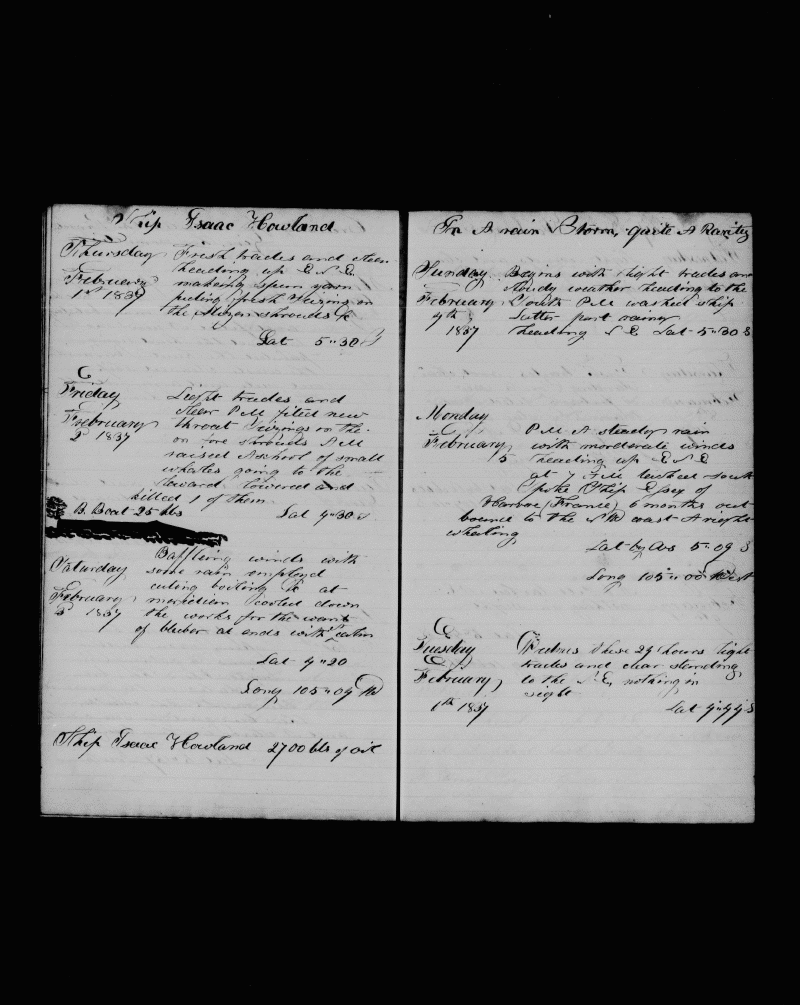 Ship Isaac Howland
Thursday Fresh trades and clear
heading up E N E
February making spun yarn
1st 1857 puting fresh Seizings on
the Mizen shrouds &c
Lat 5"30 S
Friday Light trades and
clear P.M fited new
February throat Seizings on the
2 1857 on fore shrouds A.M
raised A school of small
whales going to the
leward lowered and
killed 1 of them
B. Boat 25 bbs Lat 4"30 S
Baffling winds with
Saturday some rain employed
cuting boiling &c at
February meridian cooled down
3 1857 the works for the want
of bluber at ends with
Lat 4"20
Long 105"04 W
Ship Isaac Howland 2700 bls of oil
In A rain Storm, quite A Rarity
Sunday Begins with light trades and
cloudy weather heading to the
February South P.M washed ship
4th Latter part rainy
1857 heading N E Lat 5"30 S
Monday
P.M A steady rain
February with morderate winds
5 heading up E N E
at 7 A.M tacked south
spoke Ship Essex of
Harbor (France) 6 months out
bound to the N W coast A right
whaleing
Lat by Obs 5"09 S
Long 105"00 West
Tuesday Comes these 24 hours light
trades and clear standing
February, to the S.E, nothing in
sight
6th 1857 Lat 4"44 S